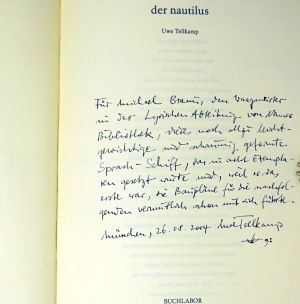 der nautilus
Uwe Tellkamp
Für Michael Braun, den Wagmeister
in der Lyrischen Abteilung von
Bibliothek, dies noch allzu leicht-
gewichtige und schaumig geformte
Sprach-Schiff, das in acht Exempla-
ren gesetzt wurde und, weil es das
erste war, die Baupläne für die nachfol-
genden vermutlich schon mit sich führte.
München, 26.08.2004 Uwe Tellkamp
BUCHLABOR